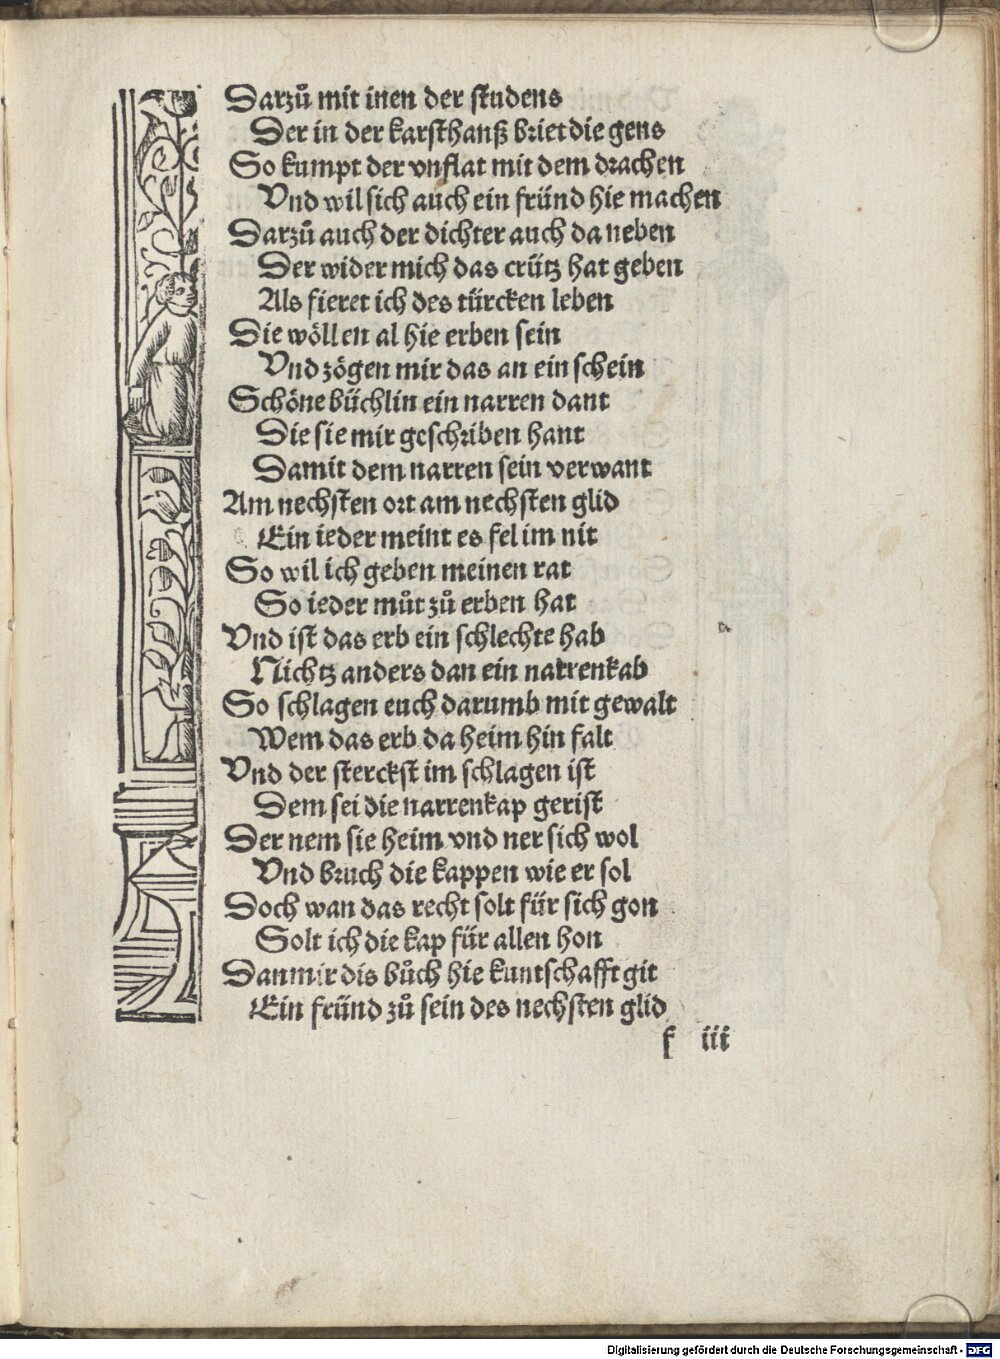 Darzů mit inen der studens
Der in der karsthanß briet die gens
So kumpt der vnflat mit dem drachen
Vnd wil sich auch ein fründ hie machen
Darzů auch der dichter auch da neben
Der wider mich das crütz hat geben
Als fieret ich des türcken leben
Die wöllen al hie erben sein
Vnd zögen mir das an ein schein
Schöne büchlin ein narren dant
Die sie mir geschriben hant
Damit dem narren sein verwant
Am nechsten ort am nechsten glid
Ein ieder meint es fel im nit
So wil ich geben meinen rat
So ieder můt zů erben hat
Vnd ist das erb ein schlechte hab
Nichtz anders dan ein narrenkab
So schlagen euch darumb mit gewalt
Wem das erb da heim hin falt
Vnd der sterckst im schlagen ist
Dem sei die narrenkap gerist
Der nem sie heim vnd ner sich wol
Vnd bruch die kappen wie er sol
Doch wan das recht solt für sich gon
Solt ich die kap für allen hon
Dan mir dis bůch hie kuntschafft git
Ein fründ zů sein des nechsten glid
f iii
Digitalisierung gefördert durch die Deutsche Forschungsgemeinschaft - DFG